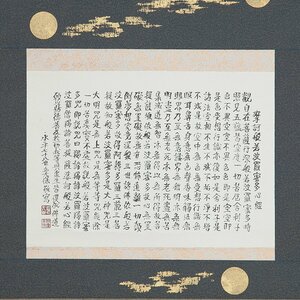 摩訶般若波羅蜜多心経
観自在菩薩行深般若波羅蜜多時
照見五蘊皆空度一切苦厄舎利子
色不異空空不異色色即是空空即
是色受想行識亦復如是舎利子是
諸法空相不生不滅不垢不浄不増
不減是故空中無色無受想行識無
眼耳鼻舌身意無色声香味触法無
眼界乃至無意識界無無明亦無無
明尽乃至無老死亦無老死尽無苦
集滅道無智亦無得以無所得故菩
提薩埵依般若波羅蜜多故心無罣
礙無罣礙故無有恐怖遠離一切顛
倒夢想究竟涅槃三世諸仏依般若
波羅蜜多故得阿耨多羅三藐三菩
提故知般若波羅蜜多是大神呪是
大明呪是無上呪是無等等呪能除
一切苦真実不虚故説般若波羅蜜
多呪即説呪曰羯諦羯諦波羅羯諦
波羅僧羯諦菩提薩婆訶般若心経